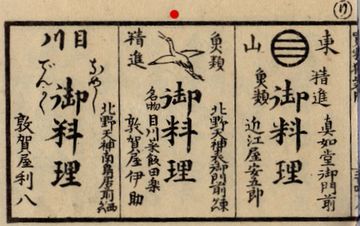 東山
精進
魚類
御料理
真如堂御門前
近江屋安五郎
魚類
精進
御料理
北野天神表御門前
名物目川菜飯田楽
敦賀屋伊助
目川
でんがく
御料理
北野天神南鳥居前
敦賀屋利八